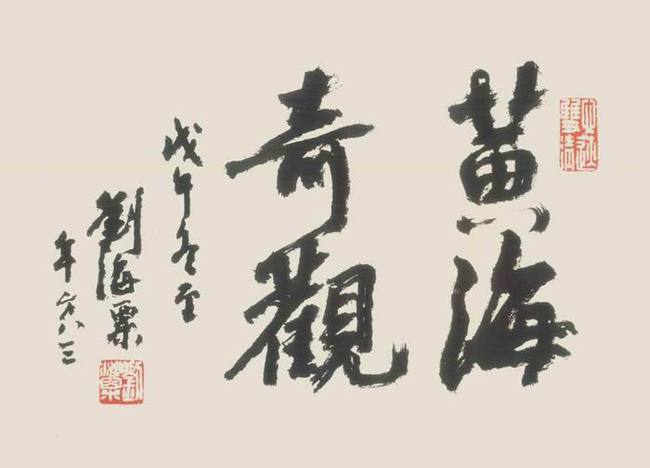 黄海
奇觀
戊午冬至
劉海粟
年方八三